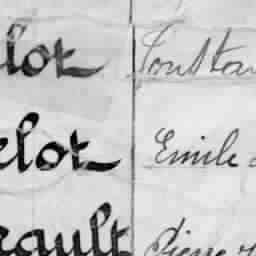 lot Constan
elot Emile
rault Pierre